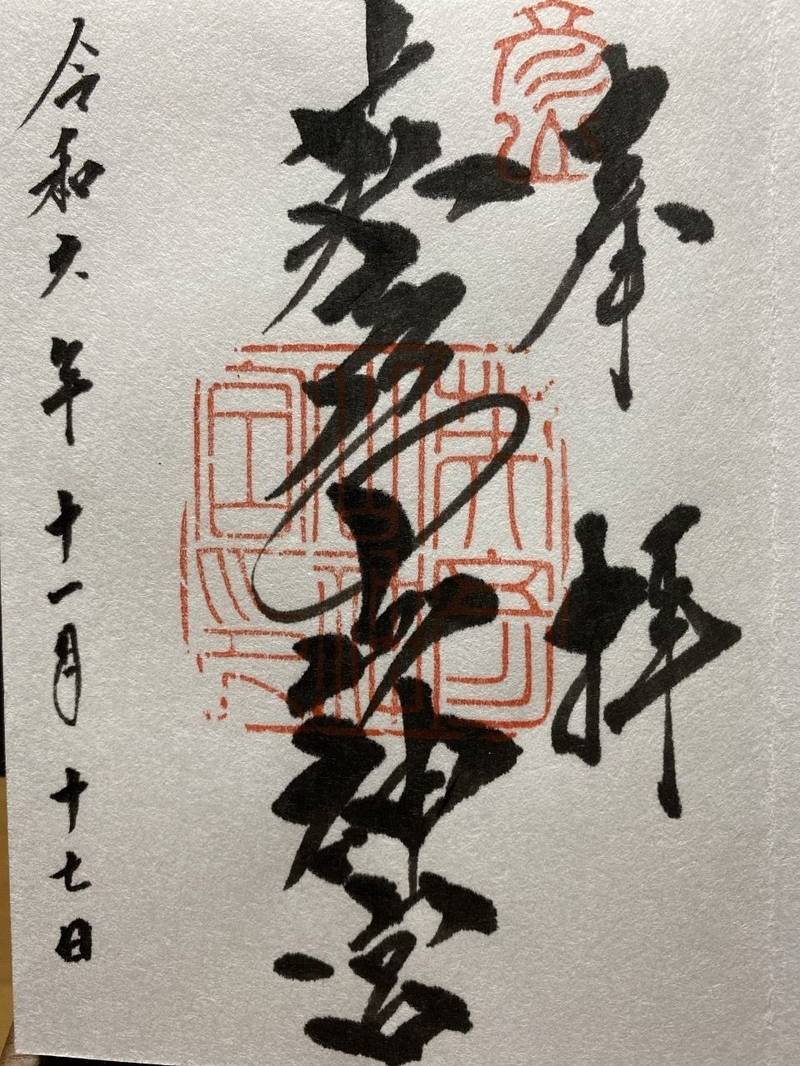 奉拝
英彦山神宮
令和六年十一月十七日